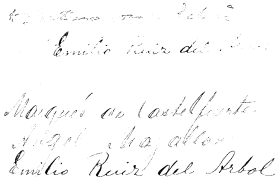 Emilio Ruiz del
Marqués de Castelfuerte
Angel Magallon
Emilio Ruiz del Arbol